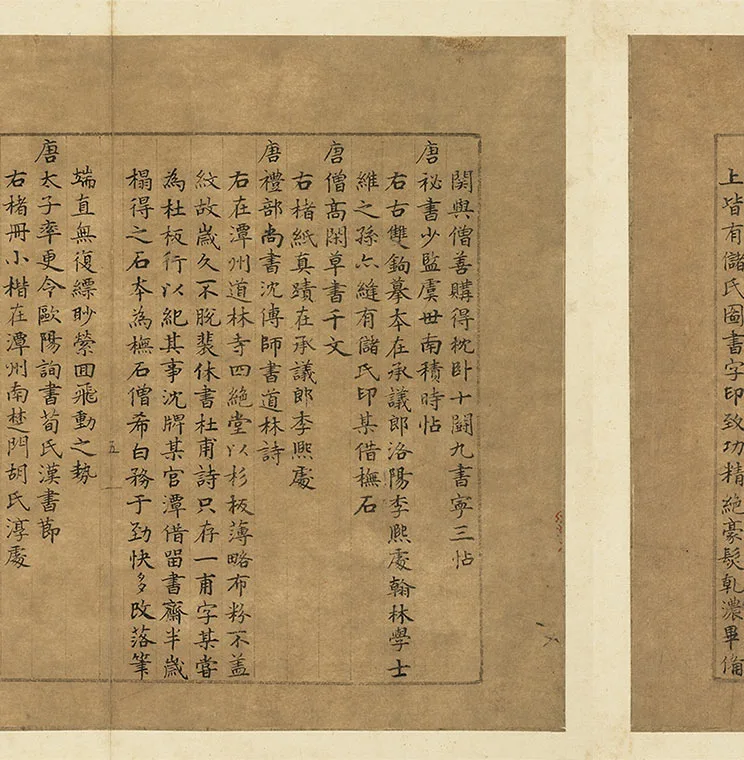 上皆有儲氏圖書字印致功精絕豪髮乹濃畢俻
関與僧善購得枕卧十䦧九書寧三帖
唐秘書少監虞世南積時帖
右右雙鉤摹夲在承議郎洛陽李熈處翰林學士
維之孫亦縫有儲氏印某借橅石
唐僧髙閑草書千文
右楮紙真蹟在承議郎李熈處
唐禮部尚書沈傳師書道林詩
右在潭州道林寺四絶堂以杉板薄略布粉不盖
紋故歲久不脫裴休書杜甫詩只存一甫字某嘗
為杜板行以紀其事沈牌某官潭借留書齋半歲
榻得之石夲為橅石僧希白務于勁快多改落筆
五
端直無復縹眇縈囬飛動之勢
唐太子率更令歐陽詢書荀氏漢書莭
右楮冊小楷在潭州南楚門胡氏淳處